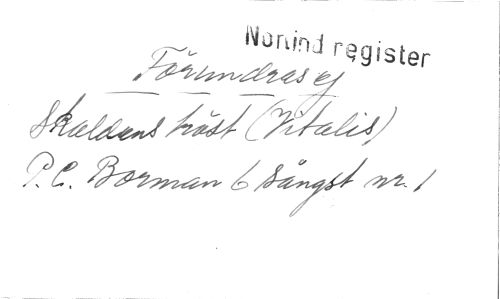 Norlind register
Förundras ej
Skaldens tröst (Vitalis)
P.C. Borman 6 sångst nr. 1